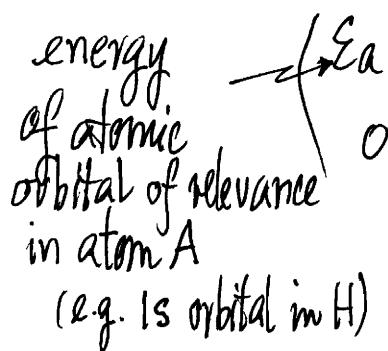 energy
of atomic
orbital of relevance
in atom A
(e.g. 1s orbital in H)
( εa
0